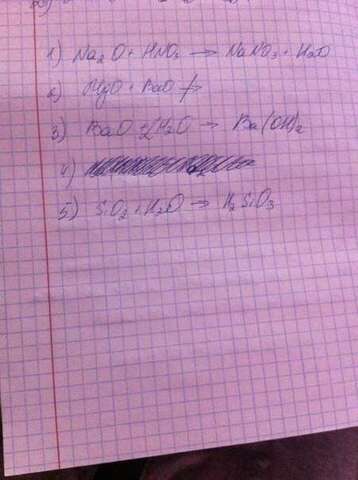 1) Na₂O + HNO₃ → NaNO₃ + H₂O
2) MgO + BaO ↛
3) BaO + H₂O → Ba(OH)₂
4)
5) SiO₂ + H₂O → H₂SiO₃